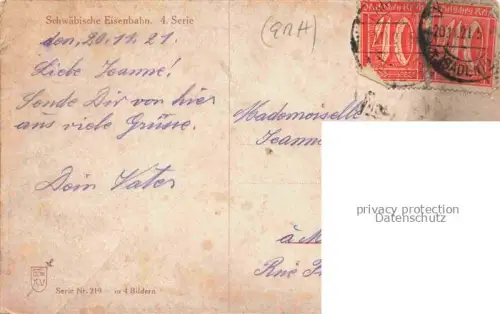 Schwäbische Eisenbahn. 4. Serie
den, 20.11.21.
Liebe Jeanne!
Sende Dir von hier
aus viele Grüsse.
Dein Vater
Serie Nr. 219 — in 4 Bildern
Mademoiselle
Jeanne
à M
Rue
40
40
20.11.21.
BADEN
privacy protection
Datenschutz